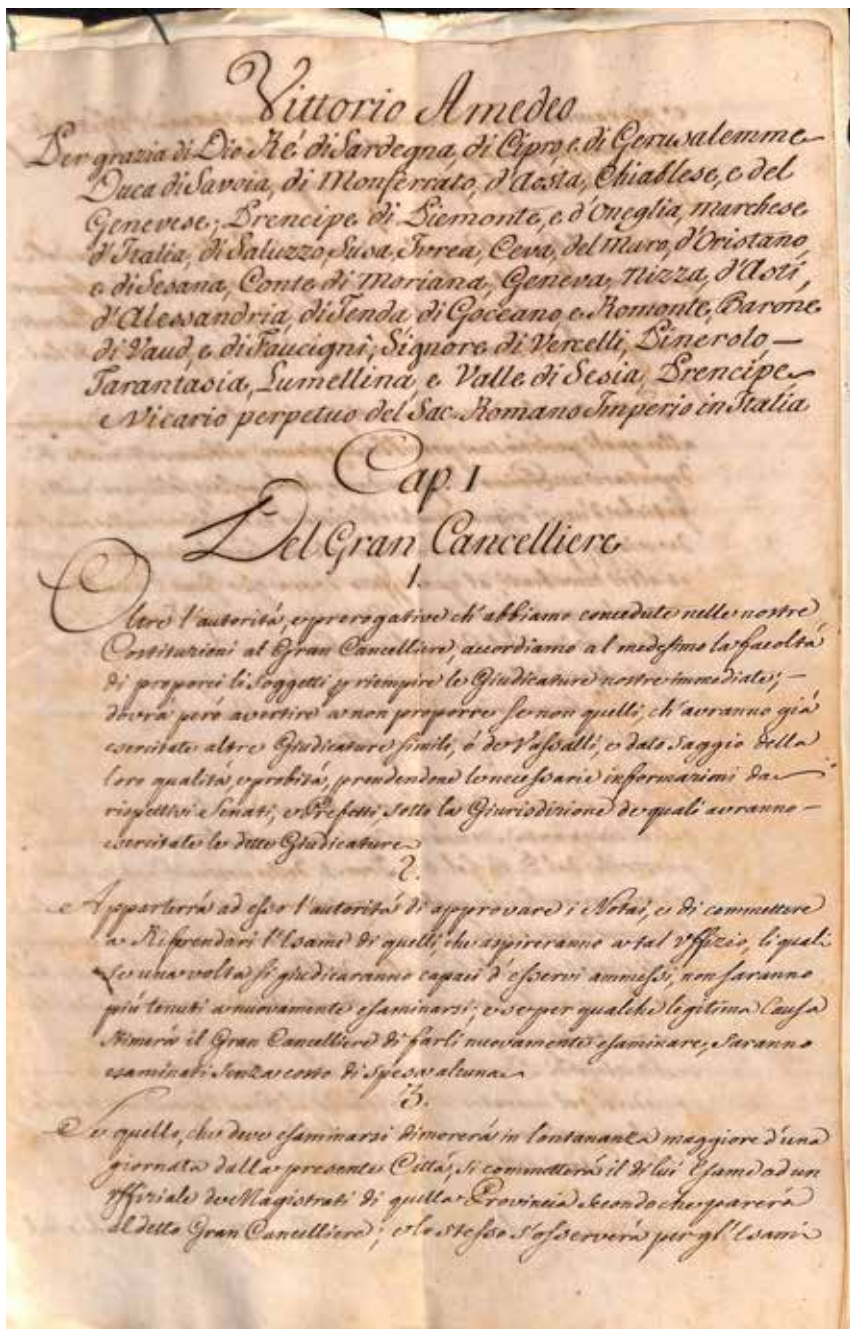 Vittorio Amedeo
Per grazia di Dio Ré di Sardegna, di Cipro, e di Gerusalemme
Duca di Savoia, di Monferrato, d'Aosta, Chiablese, e del
Genevese; Prencipe di Piemonte, e d'Oneglia, marchese
d'Italia, di Saluzzo, Susa, Ivrea, Ceva, del Maro, d'Oristano,
e di Sesana, Conte di Moriana, Geneva, Nizza, d'Asti,
d'Alessandria, di Tenda, di Goceano, e Romonte, Barone
di Vaud, e di Faucigni; Signore di Vercelli, Pinerolo –
Tarantasia, Lumellina, e Valle di Sesia, Prencipe
e Vicario perpetuo del Sac. Romano Imperio in Italia
Cap. I
Del Gran Cancelliere
1.
Oltre l'autoritá, e prerogative ch'abbiamo concedute nelle nostre
Costituzioni al Gran Cancelliere, accordiamo al medesimo la facoltá
di proporci li Soggetti p riempire le Giudicature nostre immediate; –
dovrá peró avertire a non proporre se non quelli, ch'avranno giá
esercitate altre Giudicature simili, ó de Vassalli, e dato saggio della
loro qualitá, e probitá, prendendone le necessarie informazioni da
rispettivi Senati, e Prefetti sotto la Giurisdizione de quali avranno –
esercitate le dette Giudicature
2.
Apparterrá ad esso l'autoritá di approvare i Notai, e di commettere
a Riferendari l'Esame di quelli, che aspireranno a tal Uffizio, li quali
se una volta si giudicaranno capaci d'esservi ammessi, non saranno
piú tenuti a nuovamente esaminarsi; e se per qualche legitima Causa
stimerá il Gran Cancelliere di farli nuovamente esaminare, saranno
esaminati senza costo di spesa alcuna
3.
Se quello, che deve esaminarsi dimorerá in lontananza maggiore d'una
giornata dalla presente Cittá, si commetterá il di lui Esame ad un
Uffiziale de Magistrati di quella Provincia secondo che parerá
al detto Gran Cancelliere; e lo stesso s'osserverá per gl'Esami